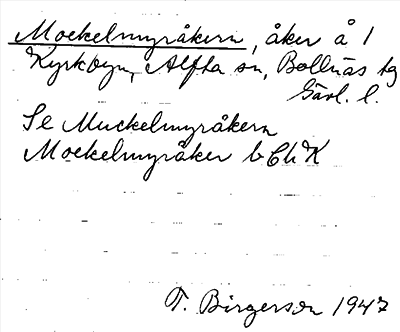 Mockelmyråkern, åker å 1
Kyrkbyn, Alfta sn, Bollnäs tg
Gävl. l.
Se Muckelmyråkern
Mockelmyråker b Ch K
T. Birgerson 1947